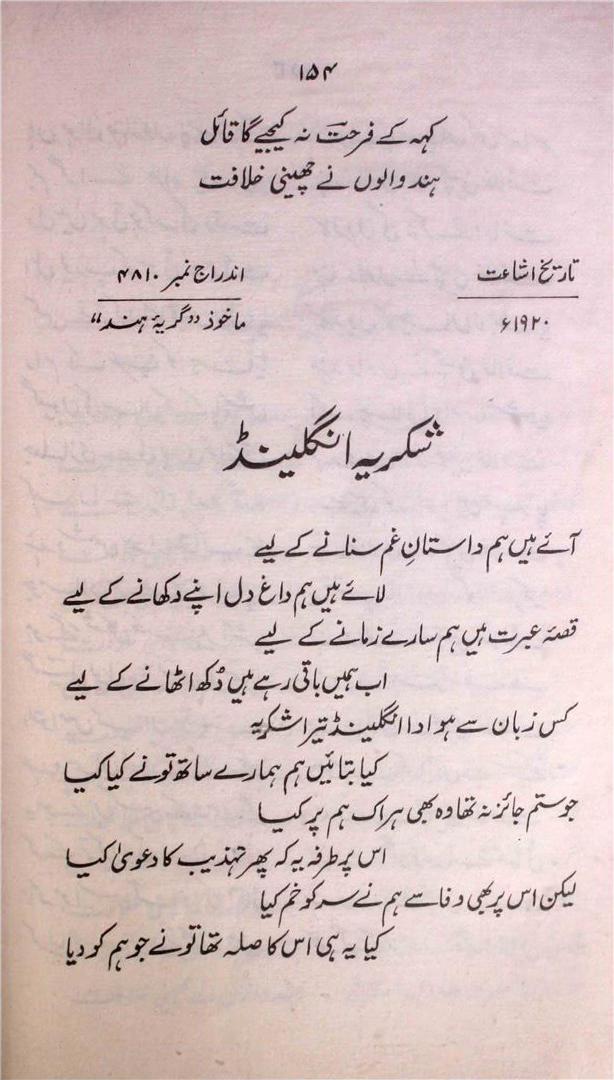 ۱۵۴
کہہ کے فرحت نہ کیجیے گا قائل
ہند والوں نے چھینی خلافت
تاریخ اشاعت
۱۹۲۰ء
اندراج نمبر ۴۸۱۰
ماخوذ "گریۂ ہند"
شکریہ انگلینڈ
آئے ہیں ہم داستانِ غم سنانے کے لیے
لائے ہیں ہم داغ دل اپنے دکھانے کے لیے
قصۂ عبرت ہیں ہم سارے زمانے کے لیے
اب ہمیں باقی رہے ہیں دُکھ اٹھانے کے لیے
کس زبان سے ہو ادا انگلینڈ تیرا شکریہ
کیا بتائیں ہم ہمارے ساتھ تو نے کیا کیا
جو ستم جائز نہ تھا وہ بھی ہر اک ہم پر کیا
اس پر طرفہ یہ کہ پھر تہذیب کا دعویٰ کیا
لیکن اس پر بھی وفا سے ہم نے سر کو خم کیا
کیا یہ ہی اس کا صلہ تھا تو نے جو ہم کو دیا